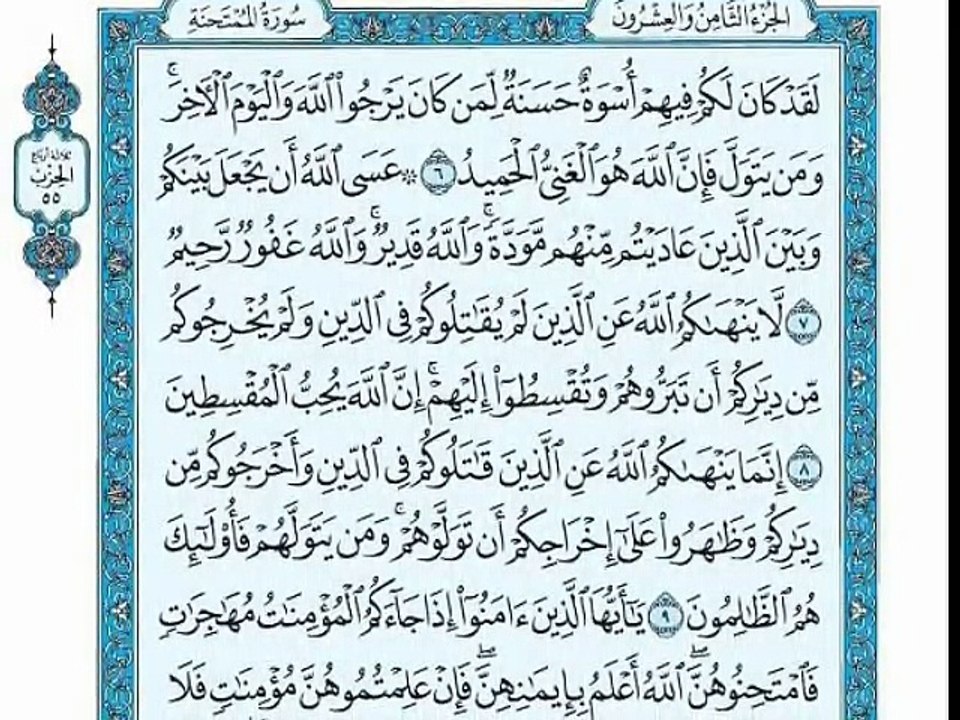 الجُزْءُ الثَّامِنُ وَالعِشْرُونَ
سُورَةُ المُمْتَحنَةِ
ثلاثة أرباع
الحِزْب
٥٥
لَقَدۡ كَانَ لَكُمۡ فِيهِمۡ أُسۡوَةٌ حَسَنَةٞ لِّمَن كَانَ يَرۡجُواْ ٱللَّهَ وَٱلۡيَوۡمَ ٱلۡأٓخِرَۚ
وَمَن يَتَوَلَّ فَإِنَّ ٱللَّهَ هُوَ ٱلۡغَنِيُّ ٱلۡحَمِيدُ ٦ ۞ عَسَى ٱللَّهُ أَن يَجۡعَلَ بَيۡنَكُمۡ
وَبَيۡنَ ٱلَّذِينَ عَادَيۡتُم مِّنۡهُم مَّوَدَّةٗۚ وَٱللَّهُ قَدِيرٞۚ وَٱللَّهُ غَفُورٞ رَّحِيمٞ
٧ لَّا يَنۡهَىٰكُمُ ٱللَّهُ عَنِ ٱلَّذِينَ لَمۡ يُقَٰتِلُوكُمۡ فِي ٱلدِّينِ وَلَمۡ يُخۡرِجُوكُم
مِّن دِيَٰرِكُمۡ أَن تَبَرُّوهُمۡ وَتُقۡسِطُوٓاْ إِلَيۡهِمۡۚ إِنَّ ٱللَّهَ يُحِبُّ ٱلۡمُقۡسِطِينَ
٨ إِنَّمَا يَنۡهَىٰكُمُ ٱللَّهُ عَنِ ٱلَّذِينَ قَٰتَلُوكُمۡ فِي ٱلدِّينِ وَأَخۡرَجُوكُم مِّن
دِيَٰرِكُمۡ وَظَٰهَرُواْ عَلَىٰٓ إِخۡرَاجِكُمۡ أَن تَوَلَّوۡهُمۡۚ وَمَن يَتَوَلَّهُمۡ فَأُوْلَٰٓئِكَ
هُمُ ٱلظَّٰلِمُونَ ٩ يَٰٓأَيُّهَا ٱلَّذِينَ ءَامَنُوٓاْ إِذَا جَآءَكُمُ ٱلۡمُؤۡمِنَٰتُ مُهَٰجِرَٰتٖ
فَٱمۡتَحِنُوهُنَّۖ ٱللَّهُ أَعۡلَمُ بِإِيمَٰنِهِنَّۖ فَإِنۡ عَلِمۡتُمُوهُنَّ مُؤۡمِنَٰتٖ فَلَا